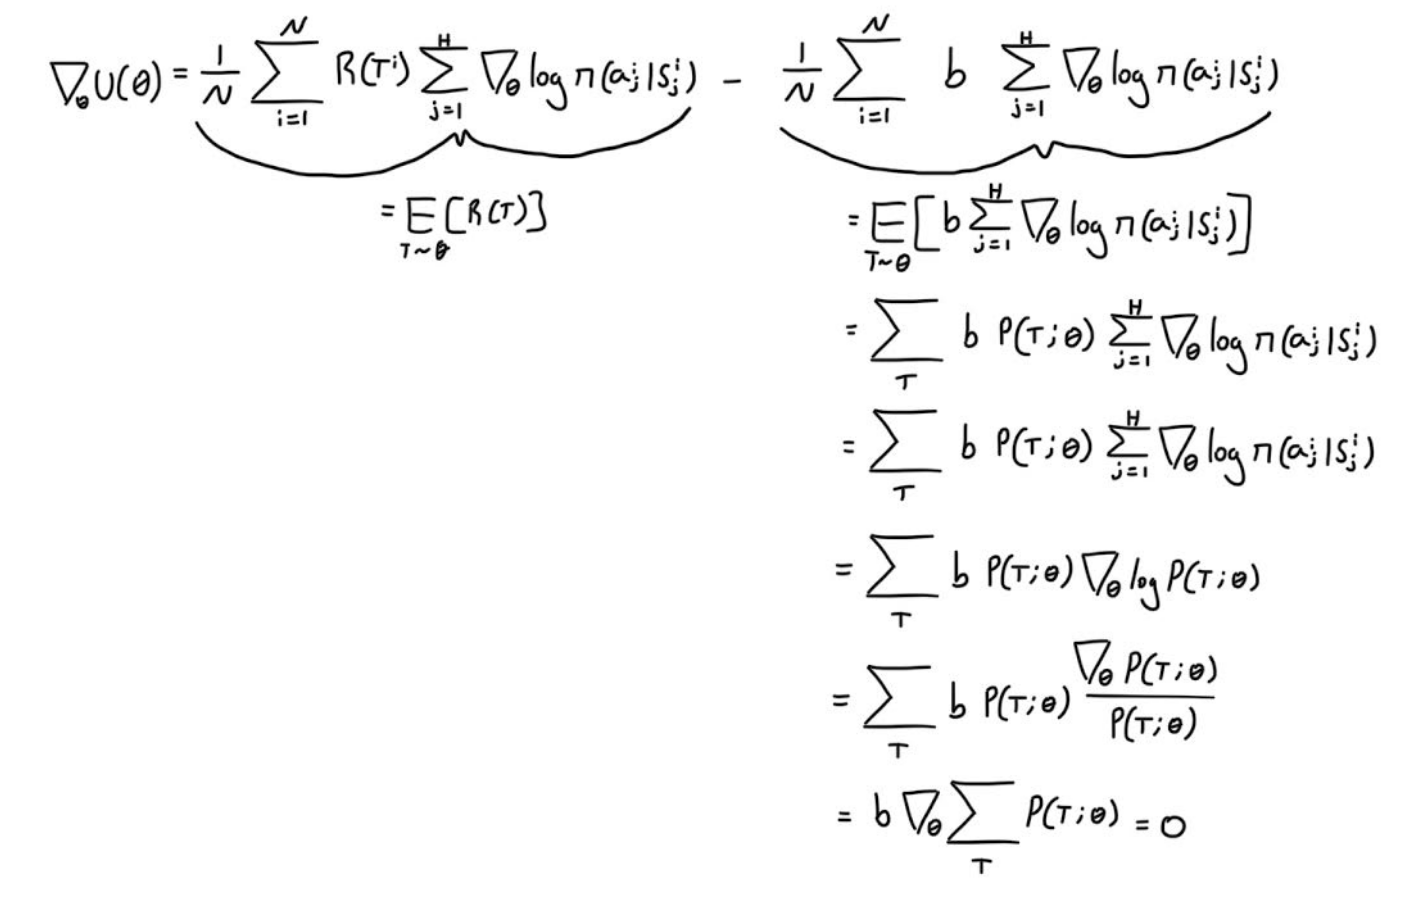 ∇_θ U(θ) = 1/N ∑_{i=1}^{N} R(T^i) ∑_{j=1}^{H} ∇_θ log π(a_j^i | S_j^i) - 1/N ∑_{i=1}^{N} b ∑_{j=1}^{H} ∇_θ log π(a_j^i | S_j^i)
= E_{T~θ} [R(T)]
= E_{T~θ} [b ∑_{j=1}^{H} ∇_θ log π(a_j^i | S_j^i)]
= ∑_T b P(T;θ) ∑_{j=1}^{H} ∇_θ log π(a_j^i | S_j^i)
= ∑_T b P(T;θ) ∑_{j=1}^{H} ∇_θ log π(a_j^i | S_j^i)
= ∑_T b P(T;θ) ∇_θ log P(T;θ)
= ∑_T b P(T;θ) ∇_θ P(T;θ) / P(T;θ)
= b ∇_θ ∑_T P(T;θ) = 0